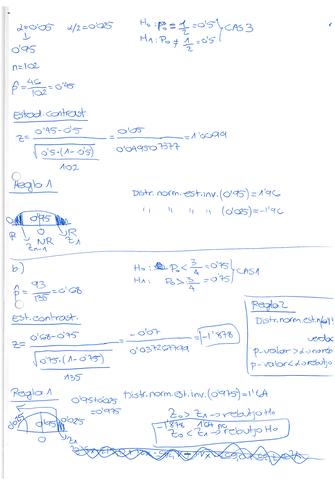 α=0'05 α/2=0'025
H₀: P₀ = 1/2 = 0'5 } CAS 3
H₁: P₀ ≠ 1/2 = 0'5
0'95
n=102
p̂ = 46/102 = 0'45
Estad. contrast
z = (0'45-0'5)/√(0'5·(1-0'5)/102) = 0'05/0'049507377 = 1'0099
Regla 1
Distr. norm. est. inv. (0'95) = 1'96
" " " " (0'025) = -1'96
0'95
R NR R
b)
H₀: P₀ < 3/4 = 0'75 } CAS 1
H₁: P₀ > 3/4 = 0'75
p̂ = 93/135 = 0'68
Est. contrast.
z = (0'68-0'75)/√(0'75·(1-0'75)/135) = -0'07/0'037267799 = -1'878
Regla 2
Distr. norm. est.
p-valor > α
p-valor < α
Regla 1
0'95+0'025
=0'975
Distr. norm. est. inv. (0'975) = 1'64
0'95 0'025
Z₀ > Z₁ → rebutjo H₀
-1'878 1'64 no
Z₀ < Z₁ → rebutjo H₀